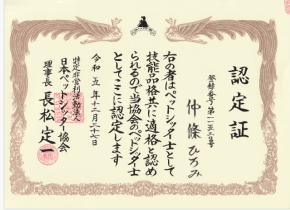 認定証
登録番号第一二五三号
仲條ひろみ
右の者はペットシッター士として
技能品格共に適格と認め
られるので当協会のペットシッター士
としてここに認定します
令和五年十二月二十七日
特定非営利活動法人
日本ペットシッター協会
理事長 長松定一